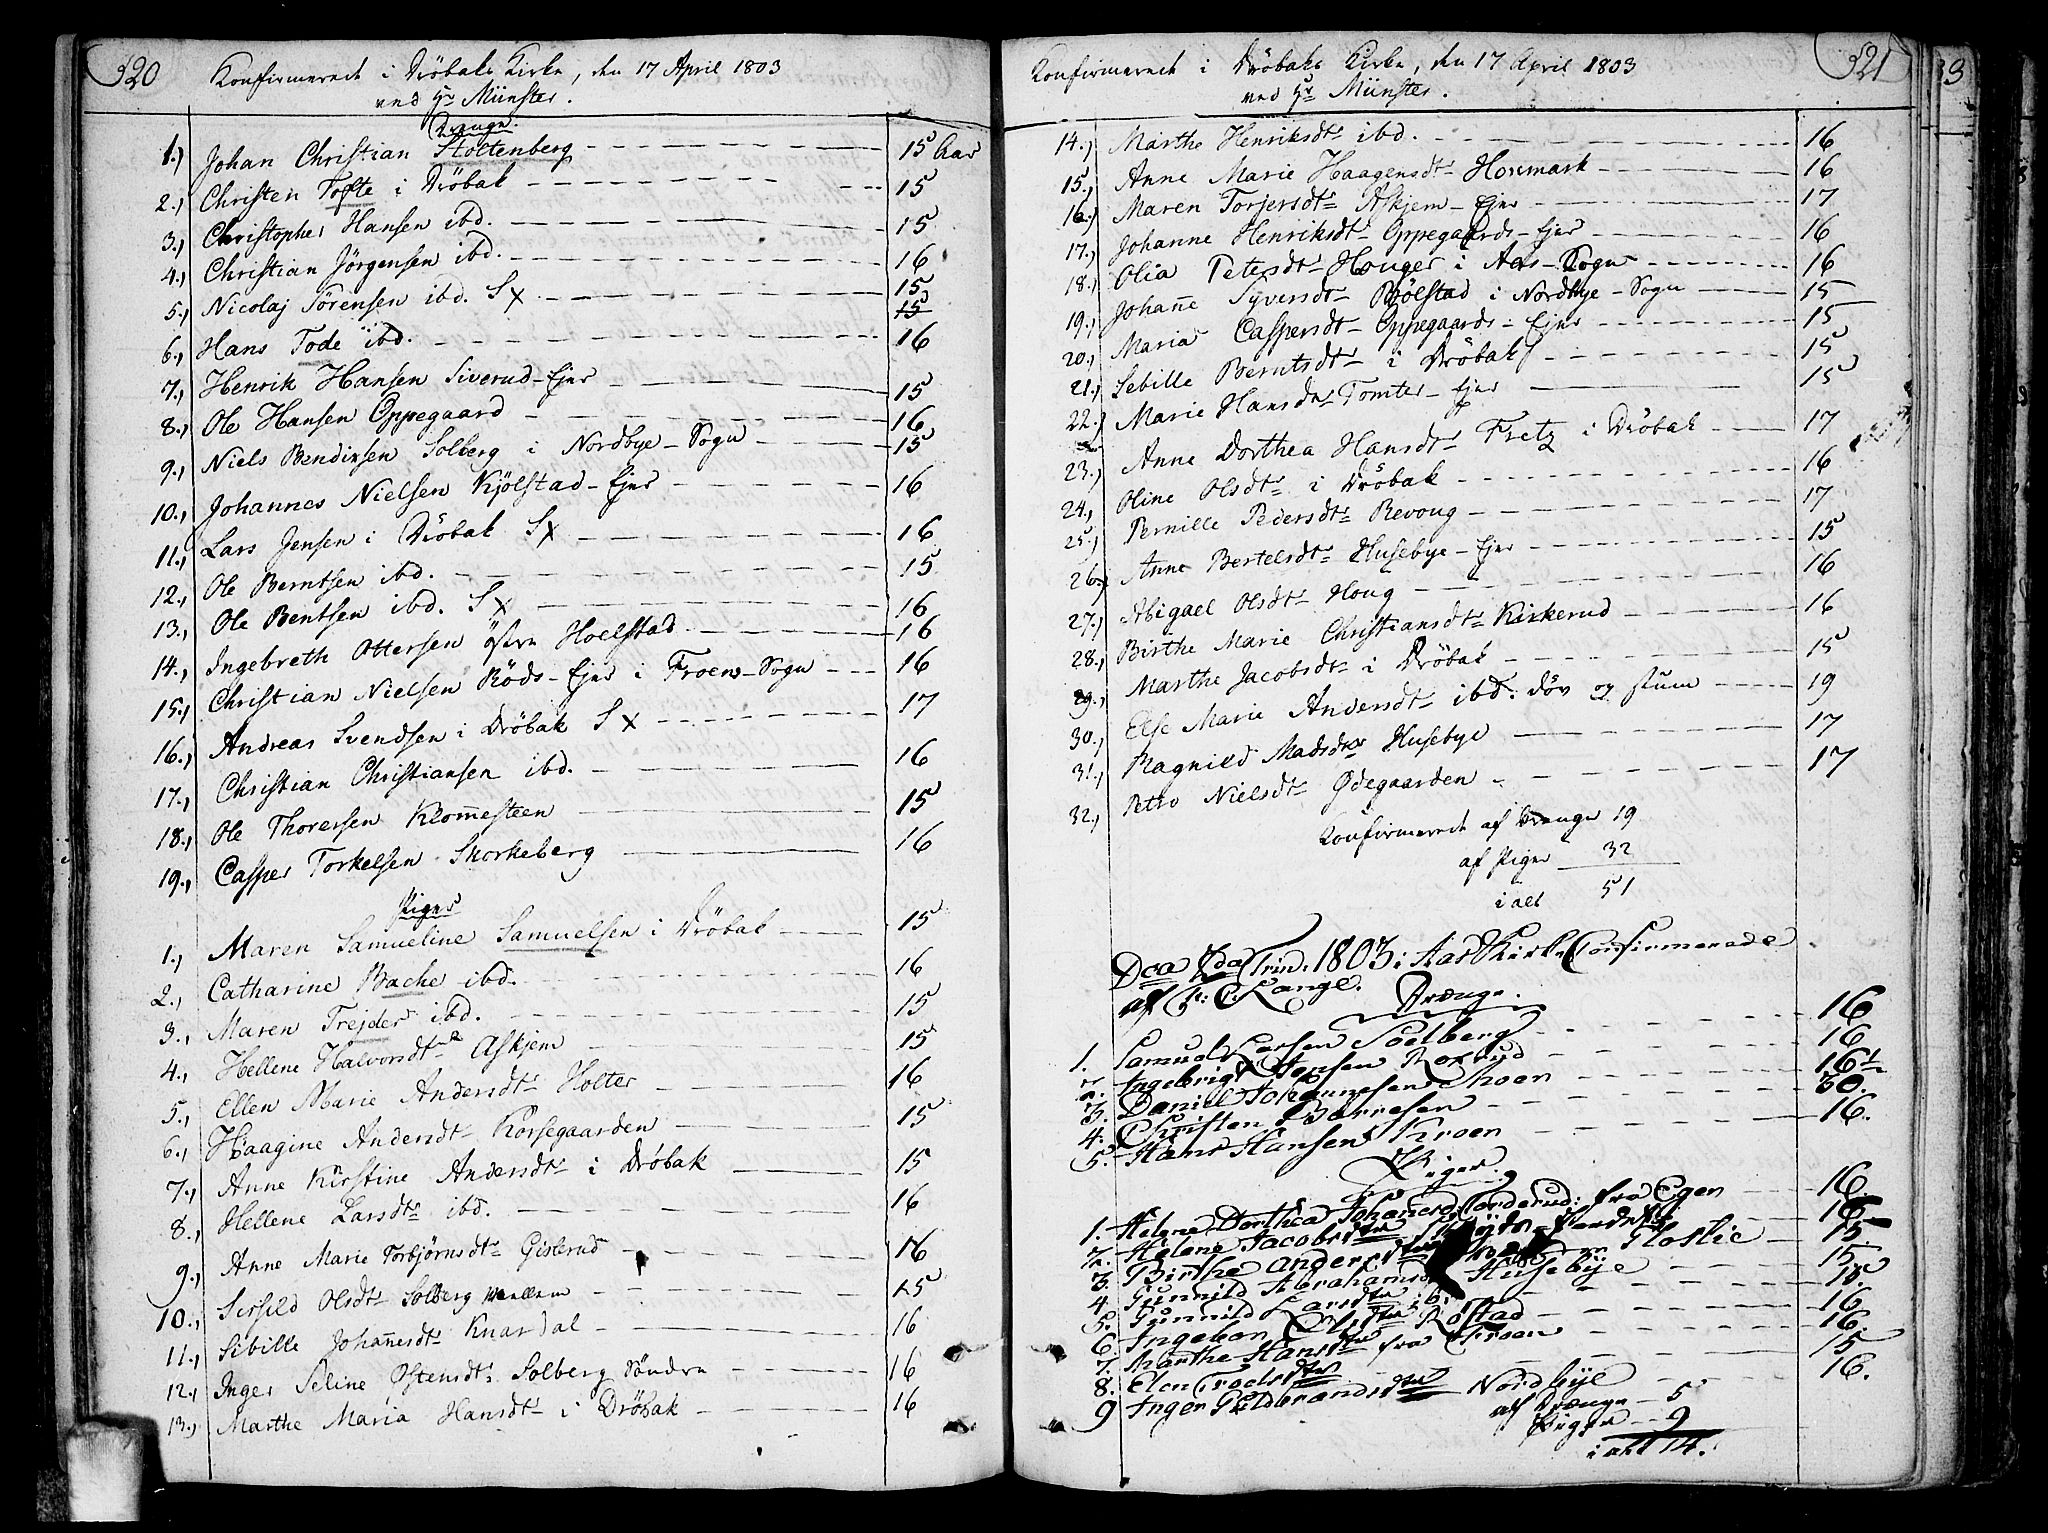 320
Konfirmerede i Dröbaks Kirke, den 17 April 1803
ved Hr Münster.
Drenge.
1.) Johan Christian Stoltenberg 15 Aar
2.) Christen Tofte i Dröbak 15
3.) Christopher Hansen ibd. 15
4.) Christian Jörgensen ibd. 16
5.) Nicolaj Sörensen ibd. Sx 15
15
6.) Hans Tode ibd. 16
7.) Henrik Hansen Siverud-Ejer 15
8.) Ole Hansen Oppegaard 16
9.) Niels Bendixsen Solberg i Nordbye-Sogn 15
10.) Johannes Nielsen Kjölstad-Ejer 16
11.) Lars Jensen i Dröbak Sx 16
12.) Ole Berntsen ibd. 15
13.) Ole Bentsen ibd. Sx 16
14.) Ingebreth Ottersen östre Hoelstad 16
15.) Christian Nielsen Röds-Ejer i Froens-Sogn 16
16.) Andreas Svendsen i Dröbak Sx 17
17.) Christian Christiansen ibd. 16
18.) Ole Thoresen Klom̄esteen 15
19.) Casper Torkelsen Skorkeberg 16
Piger
1.) Maren Samueline Samuelsen i Dröbak 15
2.) Catharine Bache ibd. 16
3.) Maren Trejder ibd. 15
4.) Hellene Halvorsdtr Askjem 15
5.) Ellen Marie Andersdtr Holter 16
6.) Haagine Andersdtr Korsegaarden 15
7.) Anne Kirstine Andersdtr i Dröbak 15
8.) Hellene Larsdtr ibd. 16
9.) Anne Marie Torbjörnsdtr Gislerud 16
10.) Sirsild Olsdtr Solberg Mellem 15
11.) Sibille Johan̄esdtr Knardal 16
12.) Inger Seline Ostensdtr Solberg Söndre 16
13.) Marthe Maria Hansdtr i Dröbak 16
321
Konfirmerede i Dröbaks Kirke, den 17 April 1803
ved Hr Münster.
14.) Marthe Henriksdtr ibd. 16
15.) Anne Marie Haagensdtr Honmark 16
16.) Maren Torjersdtr Askjem-Ejer 17
17.) Johanne Henriksdtr Oppegaards-Ejer 16
18.) Olia Petersdtr Houger i Aas-Sogn 16
19.) Johan̄e Syversdtr Bölstad i Nordbye-Sogn 15
20.) Maria Caspersdtr Oppegaards-Ejer 15
21.) Sebille Berntsdtr i Dröbak 15
22.) Marie Hansdtr Tomter-Ejer 15
23.) Anne Dorthea Hansdtr Fretz i Dröbak 17
24.) Oline Olsdtr i Dröbak 16
25.) Pernille Pedersdtr Revoug 17
26.) Anne Bertelsdtr Husebye-Ejer 15
27.) Abigael Olsdtr Houg 16
28.) Birthe Marie Christiansdtr Kirkerud 16
29.) Marthe Jacobsdtr i Dröbak 15
30.) Else Marie Andersdtr ibd. döv og stum 19
31.) Ragnild Madsdtr Husebye 17
32.) Petro Nielsdtr Ödegaarden 17
Konfirmerede af Drenge 19
af Piger 32
i alt 51
Dca 2da Trin. 1803 i Aas Kirke Confirmerede
af Lange.
Drænge.
1. Samuel Larsen Soelberg 16
2. Ingebrigt Jensen 16
3. Daniel Johannesen Moen 16½
4. Christen Barnesen 20.
5. Hans Hansen Kroen 16.
Piger.
1. Helene Dorthea Johanesd Torderud: fra Egen 16.
2. Helene Jacobsdtr 16
3. Birthe Andersdtr 15.
4. Gunnild Abrahamsd Husebÿe 15.
5. Gunnild Larsdtr ib. 15
6. Ingebor Olsdtr Rostad 16
7. Marthe Hansdtr fra Kroen 16.
8. Elen Troelsdtr 15
9 Inger Hildbrandsdtr Nordbÿe 16.
af Drænge 5
Piger 9
i alt 14.